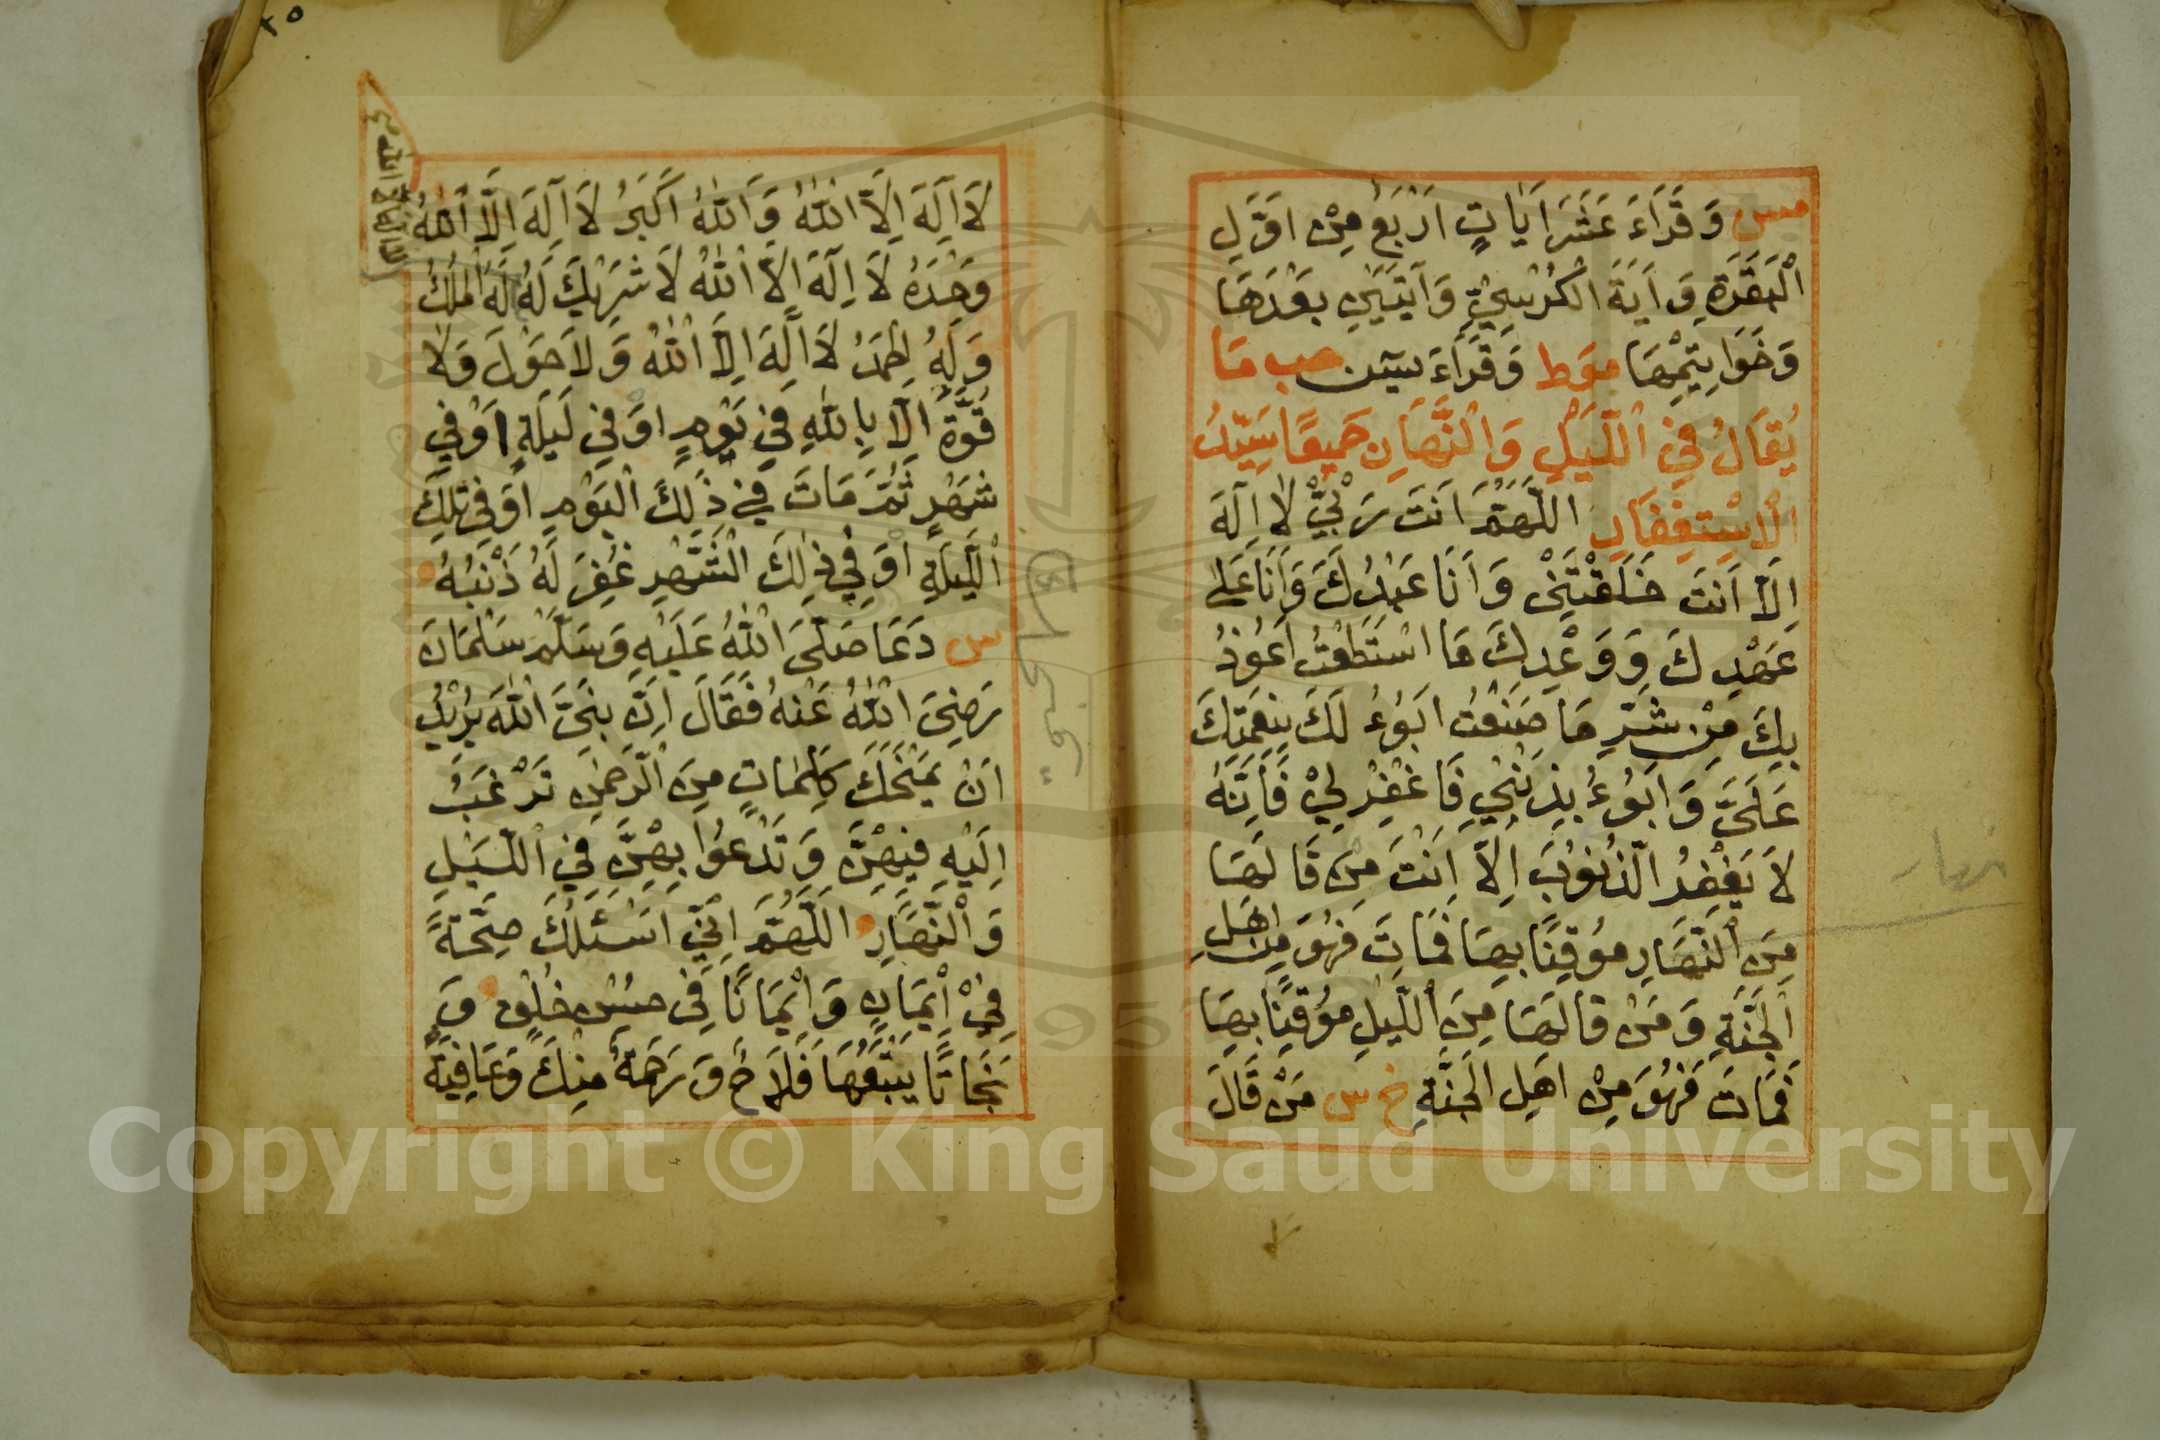 مس وَقَرَاءَ عَشَرَ اٰيَاتٍ اَرْبَعُ مِنْ اَوَّلِ
الْبَقَرَةِ وَ اٰيَةَ الْكُرْسِيِّ وَ اٰيَتَيْنِ بَعْدَهَا
وَخَوَاتِيْمِهَا موط وَقَرَاءَ يسٓن حب مَا
يُقَالُ فِي الَّيْلِ وَالنَّهَارِ جَمِيعًا سَيِّدُ
الْاِسْتِغْفَارِ اللّٰهُمَّ اَنْتَ رَبِّيْ لَا اِلٰهَ
اِلَّا اَنْتَ خَلَقْتَنِيْ وَ اَنَا عَبْدُكَ وَاَنَا عَلٰى
عَهْدِكَ وَ وَعْدِكَ مَا اسْتَطَعْتُ اَعُوْذُ
بِكَ مِنْ شَرِّ مَا صَنَعْتُ اَبُوْءُ لَكَ بِنِعْمَتِكَ
عَلَيَّ وَ اَبُوْءُ بِذَنْبِيْ فَاغْفِرْ لِيْ فَاِنَّهُ
لَا يَغْفِرُ الذُّنُوْبَ اِلَّا اَنْتَ مَنْ قَالَهَا
مِنَ النَّهَارِ مُوْقِنًا بِهَا فَمَاتَ فَهُوَ مِنْ اَهْلِ
الْجَنَّةِ وَ مَنْ قَالَهَا مِنَ اللَّيْلِ مُوْقِنًا بِهَا
فَمَاتَ فَهُوَ مِنْ اَهْلِ الْجَنَّةِ خ س مَنْ قَالَ
نهار
٢٥
لَا اِلٰهَ اِلَّا اللّٰهُ وَ اللّٰهُ اَكْبَرُ لَا اِلٰهَ اِلَّا اللّٰهُ
وَحْدَهُ لَا اِلٰهَ اِلَّا اللّٰهُ لَا شَرِيْكَ لَهُ لَهُ الْمُلْكُ
وَ لَهُ الْحَمْدُ لَا اِلٰهَ اِلَّا اللّٰهُ وَ لَا حَوْلَ وَلَا
قُوَّةَ اِلَّا بِاللّٰهِ فِي يَوْمٍ اَوْ فِي لَيْلَةٍ اَوْ فِي
شَهْرٍ ثُمَّ مَاتَ فِي ذٰلِكَ الْيَوْمِ اَوْ فِي تِلْكَ
اللَّيْلَةِ اَوْ فِي ذٰلِكَ الشَّهْرِ غُفِرَ لَهُ ذَنْبُهُ
س دَعَا صَلَّى اللّٰهُ عَلَيْهِ وَسَلَّمَ سَلْمَانَ
رَضِيَ اللّٰهُ عَنْهُ فَقَالَ اِنَّ نَبِيَّ اللّٰهِ يُرِيْدُ
اَنْ يَمْنَحَكَ كَلِمَاتٍ مِنَ الرَّحْمٰنِ تَرْغَبُ
اِلَيْهِ فِيْهِنَّ وَ تَدْعُوْا بِهِنَّ فِي اللَّيْلِ
وَ النَّهَارِ اللّٰهُمَّ اِنِّيْ اَسْئَلُكَ صِحَّةً
فِيْ اِيْمَانٍ وَ اِيْمَانًا فِي حُسْنِ خُلْقٍ وَ
نَجَاتًا يَتْبَعُهَا فَلَاحٌ وَ رَحْمَةً مِنْكَ وَعَافِيَةً
Copyright © King Saud University